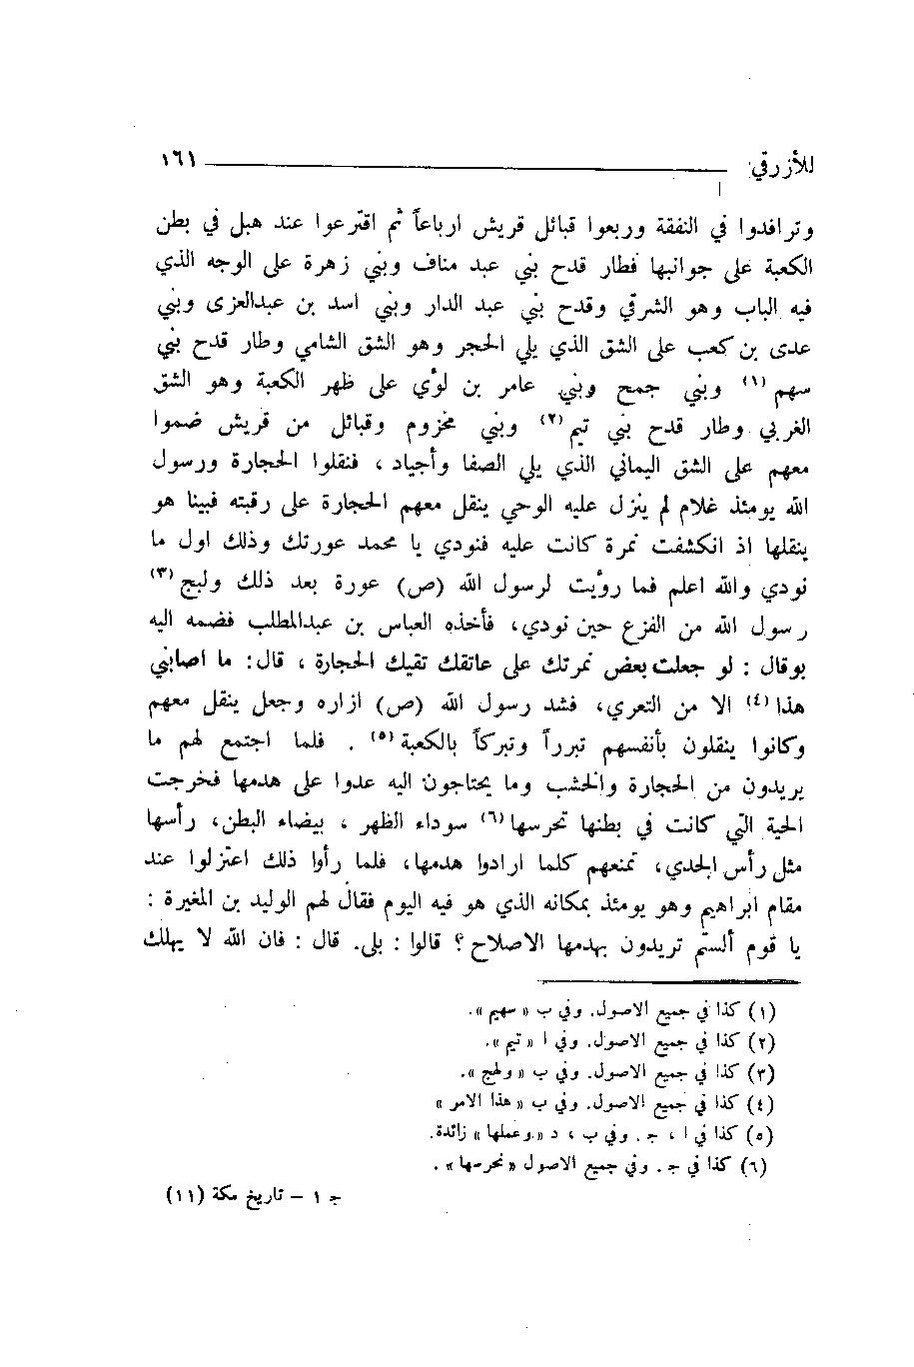 للأزرقي ١٦١
وترافدوا في النفقة وربعوا قبائل قريش ارباعاً ثم اقترعوا عند هبل في بطن
الكعبة على جوانبها فطار قدح بني عبد مناف وبني زهرة على الوجه الذي
فيه الباب وهو الشرقي وقدح بني عبد الدار وبني اسد بن عبدالعزى وبني
عدى بن كعب على الشق الذي يلي الحجر وهو الشق الشامي وطار قدح بني
سهم (١) وبني جمح وبني عامر بن لؤي على ظهر الكعبة وهو الشق
الغربي وطار قدح بني تيم (٢) وبني مخزوم وقبائل من قريش ضموا
معهم على الشق اليماني الذي يلي الصفا وأجياد ، فنقلوا الحجارة ورسول
الله يومئذ غلام لم ينزل عليه الوحي ينقل معهم الحجارة على رقبته فبينا هو
ينقلها اذ انكشفت نمرة كانت عليه فنودي يا محمد عورتك وذلك اول ما
نودي والله اعلم فما رؤيت لرسول الله (ص) عورة بعد ذلك ولبج (٣)
رسول الله من الفزع حين نودي، فأخذه العباس بن عبدالمطلب فضمه اليه
وقال : لو جعلت بعض نمرتك على عاتقك تقيك الحجارة ، قال: ما اصابني
هذا (٤) الا من التعري، فشد رسول الله (ص) ازاره وجعل ينقل معهم
وكانوا ينقلون بأنفسهم تبرراً وتبركاً بالكعبة (٥) . فلما اجتمع لهم ما
يريدون من الحجارة والخشب وما يحتاجون اليه عدوا على هدمها فخرجت
الحية التي كانت في بطنها تحرسها (٦) سوداء الظهر ، بيضاء البطن، رأسها
مثل رأس الجدي، تمنعهم كلما ارادوا هدمها، فلما رأوا ذلك اعتزلوا عند
مقام ابراهيم وهو يومئذ بمكانه الذي هو فيه اليوم فقال لهم الوليد بن المغيرة :
يا قوم ألستم تريدون بهدمها الاصلاح ؟ قالوا : بلى. قال : فان الله لا يهلك
(١) كذا في جميع الاصول. وفي ب « سهيم ».
(٢) كذا في جميع الاصول. وفي ا « تيم ».
(٣) كذا في جميع الاصول. وفي ب « ولهج ».
(٤) كذا في جميع الاصول. وفي ب « هذا الامر »
(٥) كذا في ا ، ج . وفي ب ، د « وعملها » زائدة.
(٦) كذا في ج . وفي جميع الاصول « نحرسها » .
ج ١ – تاريخ مكة (١١)